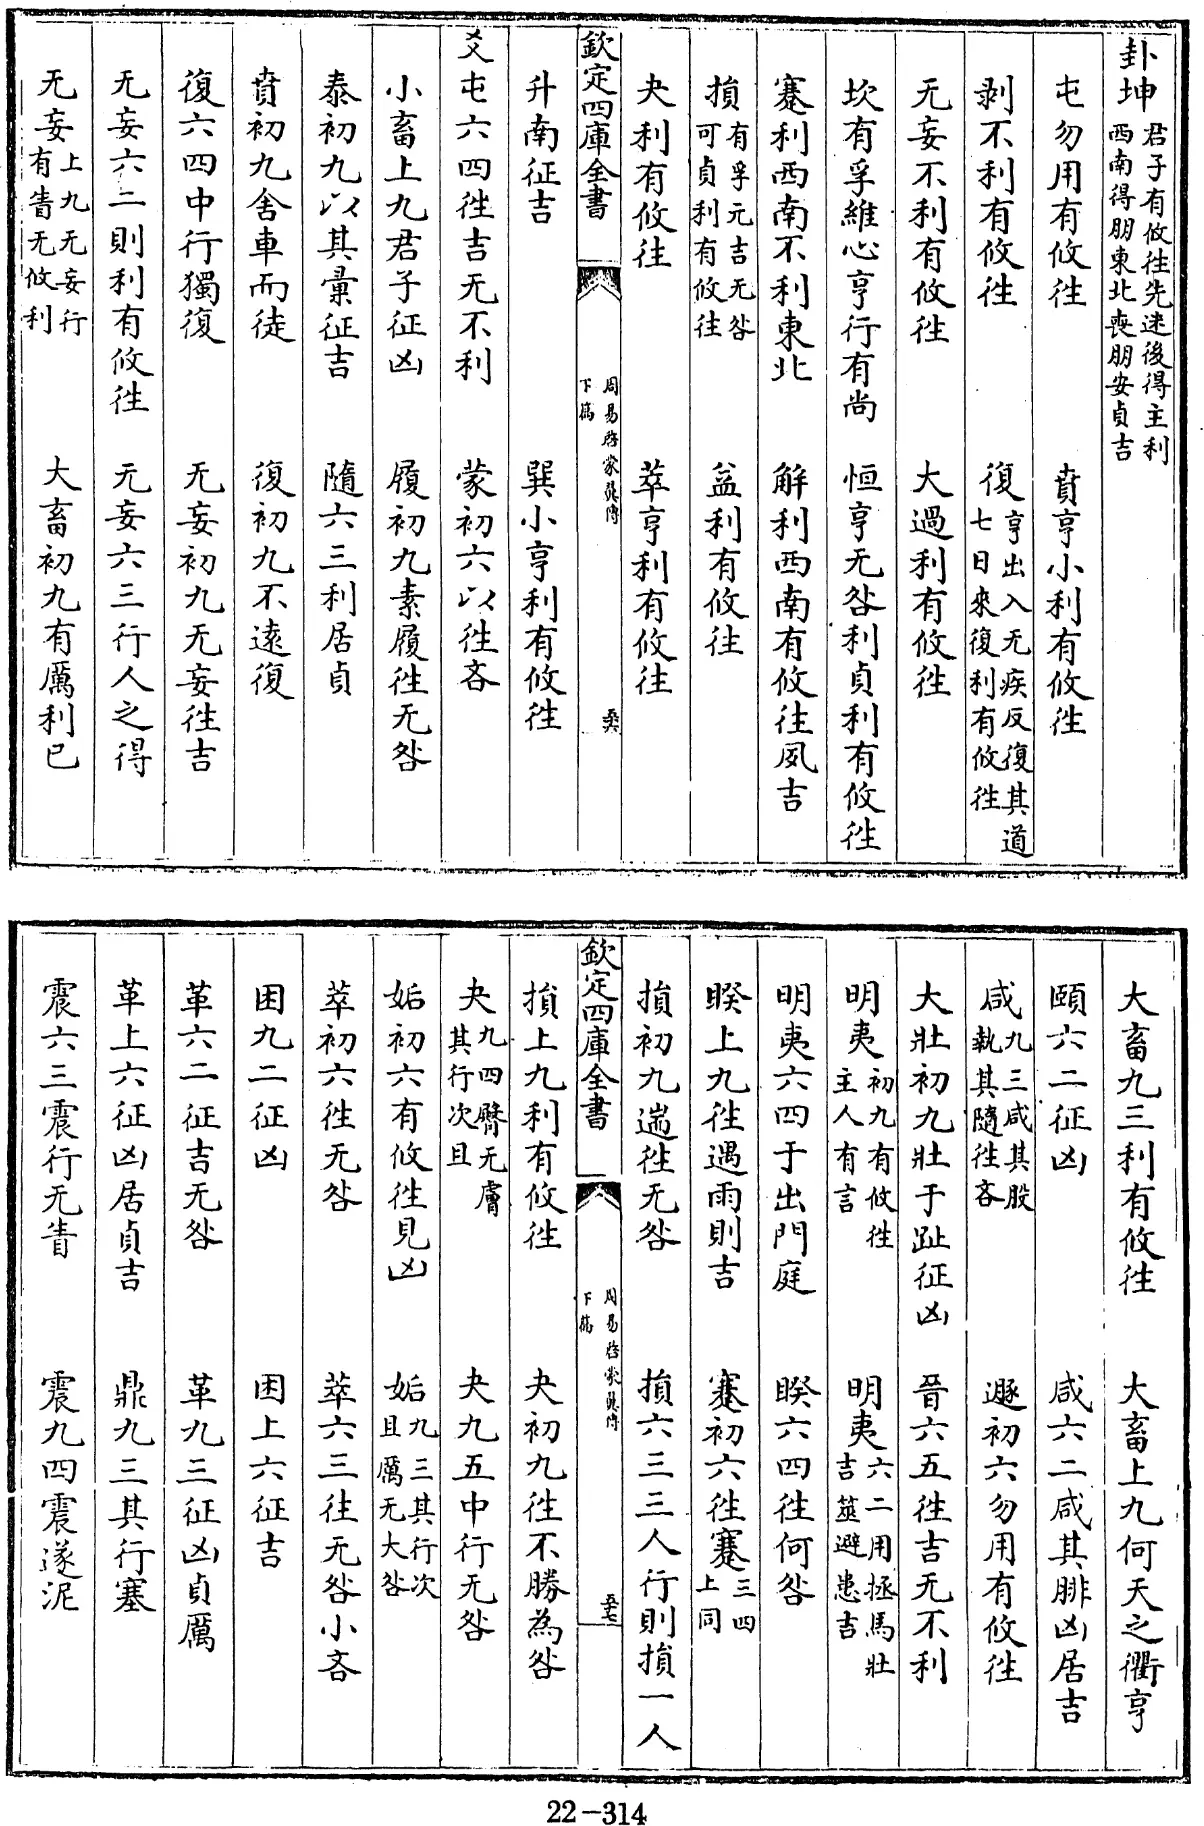 卦坤君子有攸往先迷後得主利西南得朋東北喪朋安貞吉
屯勿用有攸往　賁亨小利有攸往
剥不利有攸往　復亨出入无疾反復其道七日來復利有攸往
无妄不利有攸往　大過利有攸往
坎有孚維心亨行有尚　恒亨无咎利貞利有攸往
蹇利西南不利東北　解利西南有攸往夙吉
損有孚元吉无咎可貞利有攸往　益利有攸往
夬利有攸往　萃亨利有攸往
欽定四庫全書　周易啓蒙翼傳下篇　五十六
升南征吉　巽小亨利有攸往
爻屯六四往吉无不利　蒙初六以往吝
小畜上九君子征凶　履初九素履往无咎
泰初九以其彙征吉　隨六三利居貞
賁初九舍車而徒　復初九不遠復
復六四中行獨復　无妄初九无妄往吉
无妄六二則利有攸往　无妄六三行人之得
无妄上九无妄行有眚无攸利　大畜初九有厲利已
大畜九三利有攸往　大畜上九何天之衢亨
頤六二征凶　咸六二咸其腓凶居吉
咸九三咸其股執其隨往吝　遯初六勿用有攸往
大壯初九壯于趾征凶　晉六五往吉无不利
明夷初九有攸往主人有言　明夷六二用拯馬壯吉筮避患吉
明夷六四于出門庭　睽六四往何咎
睽上九往遇雨則吉　蹇初六往蹇三四上同
損初九遄往无咎　損六三三人行則損一人
欽定四庫全書　周易啓蒙翼傳下篇　五十七
損上九利有攸往　夬初九往不勝為咎
夬九四臀无膚其行次且　夬九五中行无咎
姤初六有攸往見凶　姤九三其行次且厲无大咎
萃初六往无咎　萃六三往无咎小吝
困九二征凶　困上六征吉
革六二征吉无咎　革九三征凶貞厲
革上六征凶居貞吉　鼎九三其行塞
震六三震行无眚　震九四震遂泥
22-314